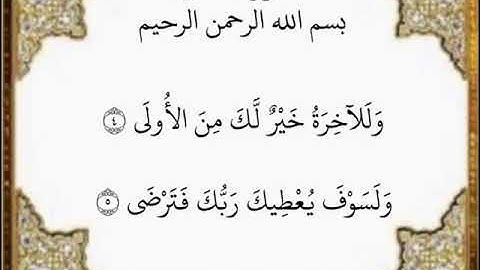 بسم الله الرحمن الرحيم
وَلَلآخِرَةُ خَيْرٌ لَّكَ مِنَ الأُولَى ﴿٤﴾
وَلَسَوْفَ يُعْطِيكَ رَبُّكَ فَتَرْضَى ﴿٥﴾